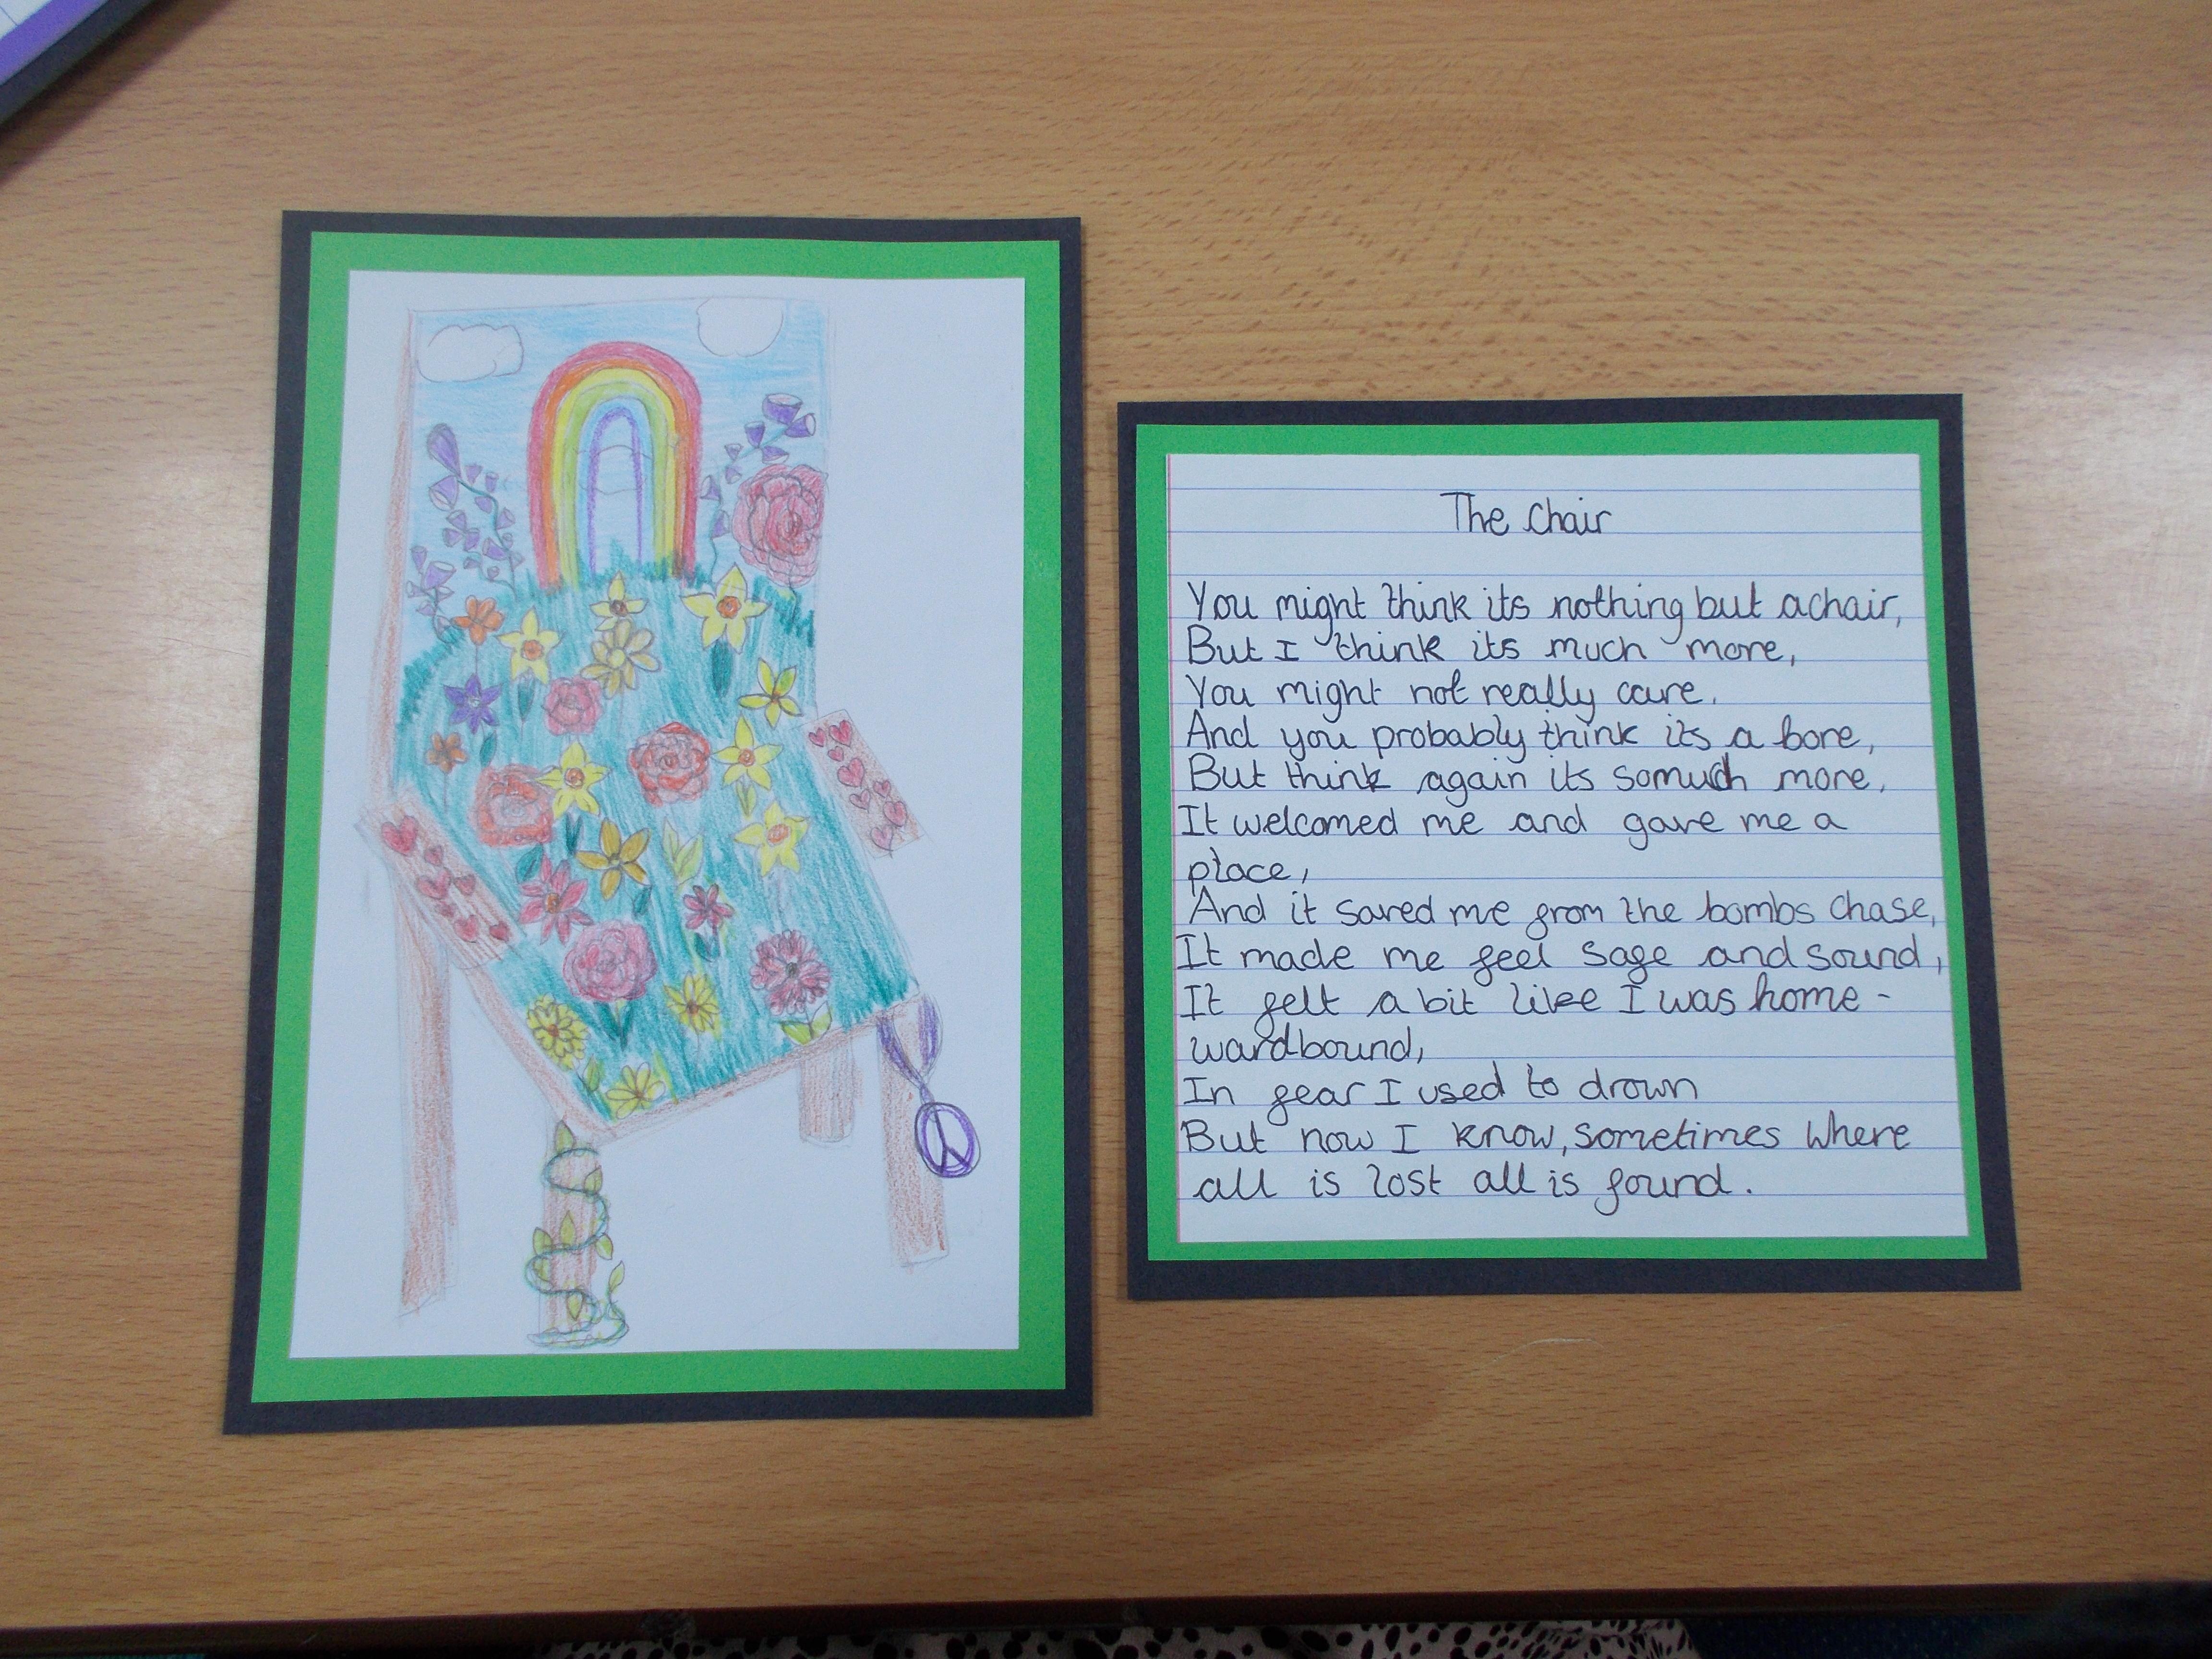 The Chair
You might think its nothing but a chair,
But I think its much more,
You might not really care.
And you probably think its a bore,
But think again its so much more,
It welcomed me and gave me a
place,
And it saved me from the bombs chase,
It made me feel safe and sound,
It felt a bit like I was home-
ward bound,
In fear I used to drown
But now I know, sometimes where
all is lost all is found.